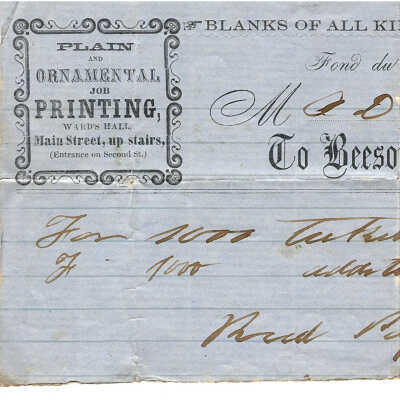 PLAIN
AND
ORNAMENTAL
JOB
PRINTING,
WARD'S HALL,
Main Street, up stairs,
(Entrance on Second St.)
BLANKS OF ALL KI
Fond du
M A D
To Beeso
For 1000 Ticke
F 1000 additi
Recd Pa